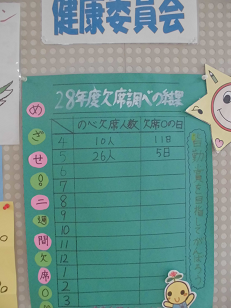 健康委員会
28年度欠席調べの結果
のべ欠席人数 欠席0の日
4 10人 11日
5 26人 5日
6
7
8
9
10
11
12
1
2
3
めざせ!!二週間欠席0